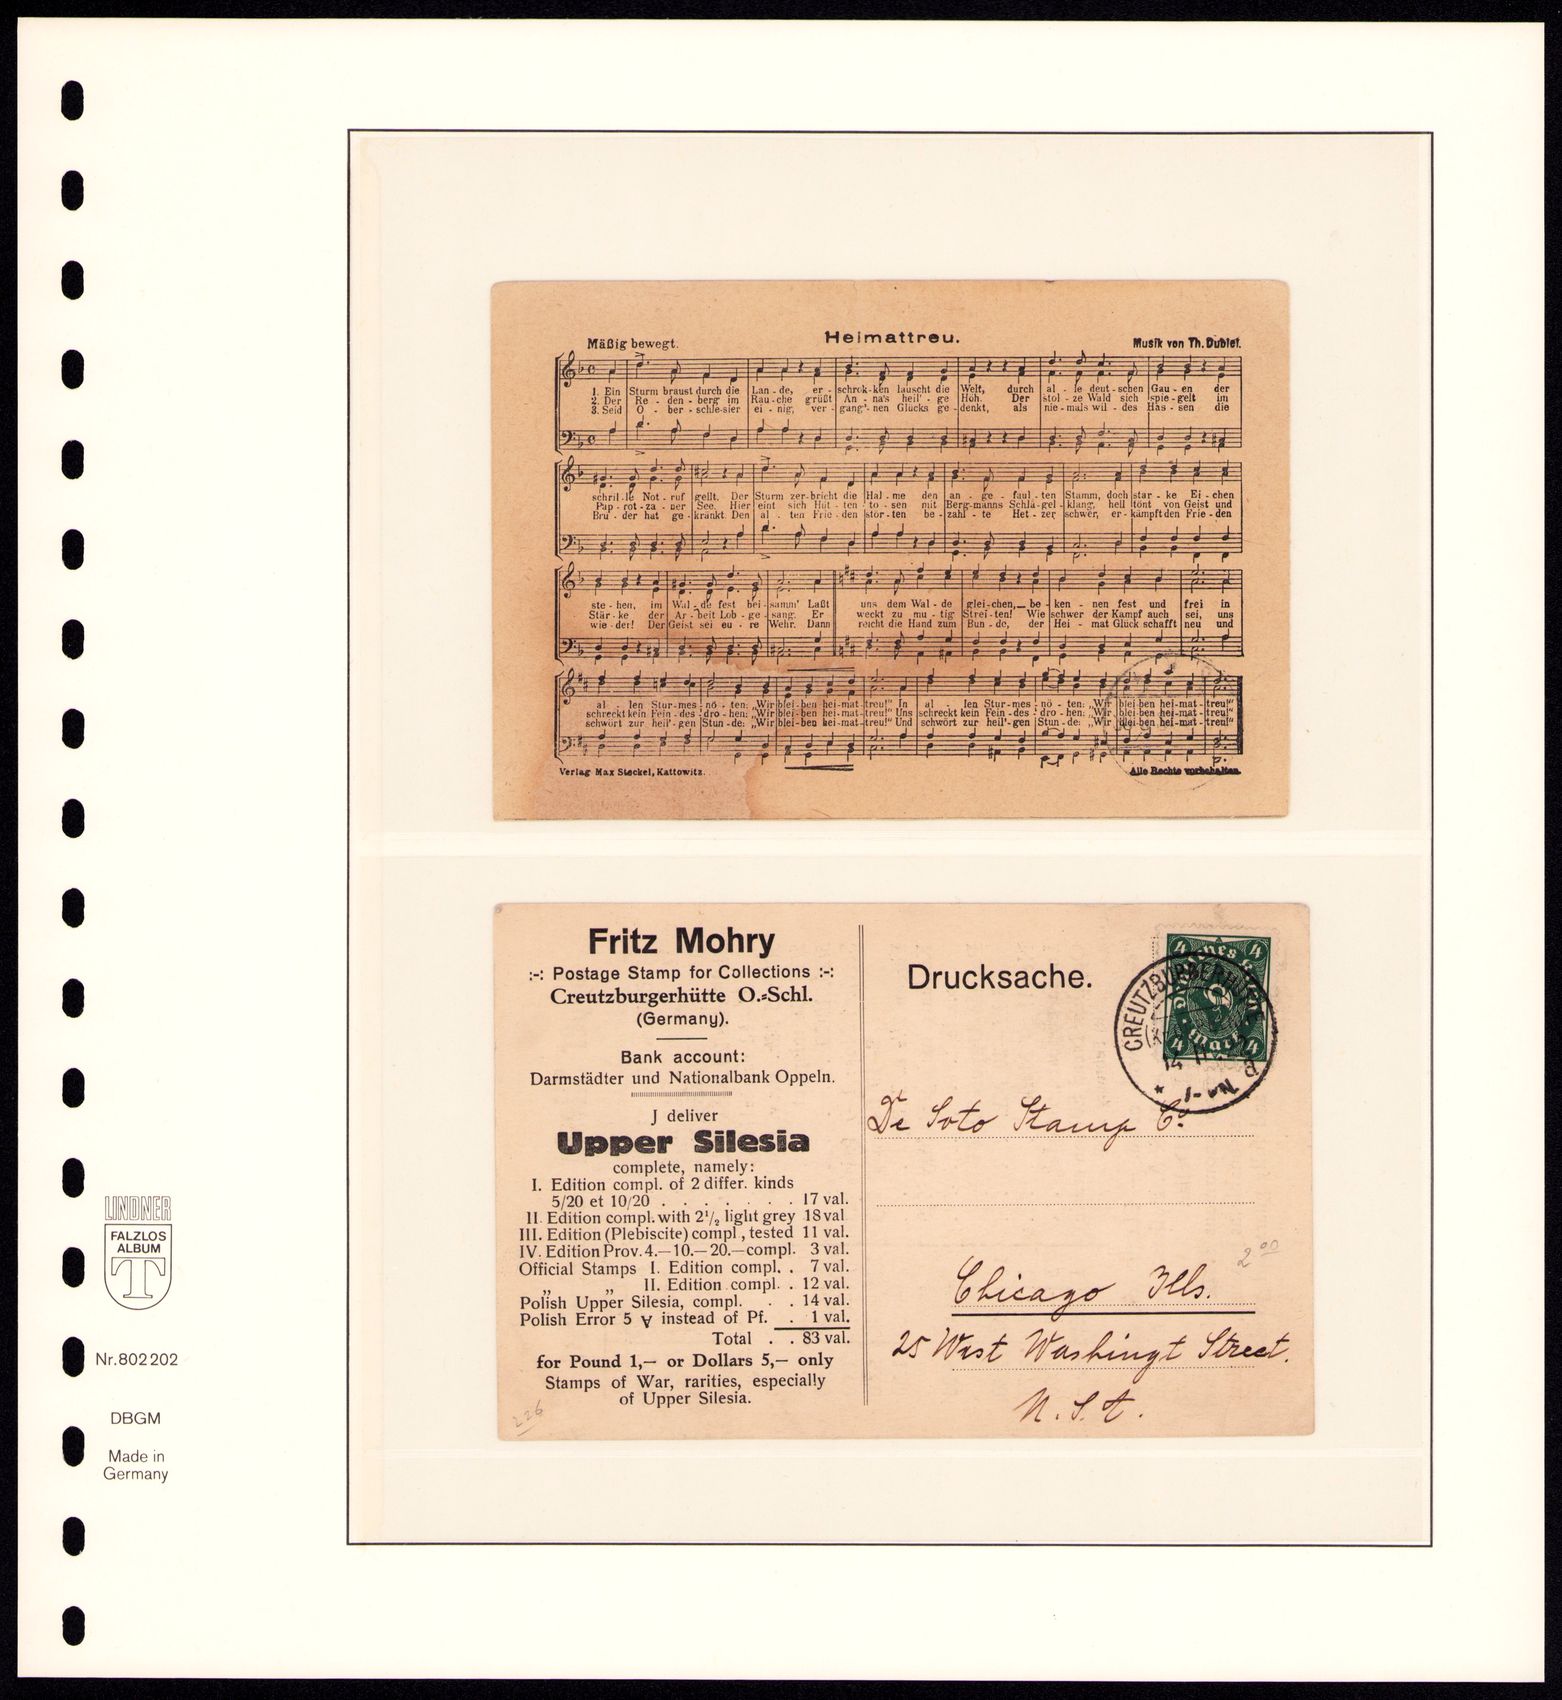 Heimattreu.
Mäßig bewegt.
Musik von Th. Dubiel.
1. Ein Sturm braust durch die Lan-de, er-schrok-ken lauscht die Welt, durch al-le deut-schen Gau-en der
2. Der Re-den-berg im Rau-che grüßt An-na's heil'-ge Höh. Der stol-ze Wald sich spie-gelt im
3. Seid O-ber-schle-sier ei-nig, ver-gang'-nen Glücks ge-denkt, als nie-mals wil-des Has-sen die
schril-le Not-ruf gellt. Der Sturm zer-bricht die Hal-me den an-ge-faul-ten Stamm, doch star-ke Ei-chen
Pap-rot-za-ner See. Hier eint sich Hüt-ten to-sen mit Berg-manns Schlä-gel-klang, hell tönt von Geist und
Bru-der hat ge-kränkt. Den al-ten Frie-den stör-ten be-zahl-te Het-zer schwer, er-kämpft den Frie-den
ste-hen, im Wal-de fest bei-samm' Laßt uns dem Wal-de glei-chen, be-ken-nen fest und frei in
Stär-ke der Ar-beit Lob-ge-sang. Er weckt zu mu-tig Strei-ten! Wie schwer der Kampf auch sei, uns
wie-der! Der Geist sei eu-re Wehr. Dann reicht die Hand zum Bun-de, der Hei-mat Glück schafft neu und
al-len Stur-mes-nö-ten: „Wir blei-ben hei-mat-treu!" In al-len Stur-mes-nö-ten: „Wir blei-ben hei-mat-treu!"
schreckt kein Fein-des-dro-hen: „Wir blei-ben hei-mat-treu!" Uns schreckt kein Fein-des-dro-hen: „Wir blei-ben hei-mat-treu!"
schwört zur heil'-gen Stun-de: „Wir blei-ben hei-mat-treu!" Und schwört zur heil'-gen Stun-de: „Wir blei-ben hei-mat-treu!"
Verlag Max Steckel, Kattowitz.
Alle Rechte vorbehalten.
Fritz Mohry
:-: Postage Stamp for Collections :-:
Creutzburgerhütte O.=Schl.
(Germany).
Bank account:
Darmstädter und Nationalbank Oppeln.
J deliver
Upper Silesia
complete, namely:
I. Edition compl. of 2 differ. kinds
5/20 et 10/20 . . . . . . . 17 val.
II. Edition compl. with 2½ light grey 18 val
III. Edition (Plebiscite) compl., tested 11 val.
IV. Edition Prov. 4.—10.—20.—compl. 3 val.
Official Stamps I. Edition compl. . 7 val.
„ „ II. Edition compl. . 12 val.
Polish Upper Silesia, compl. . . 14 val.
Polish Error 5 ∀ instead of Pf. . 1 val.
Total . . 83 val.
for Pound 1,— or Dollars 5,— only
Stamps of War, rarities, especially
of Upper Silesia.
226
Drucksache.
4 4
Mark
4 4
CREUTZBURGERHÜTTE
De Soto Stamp Co.
2 00
Chicago Ills.
25 West Washingt Street.
U.S.A.
LINDNER
FALZLOS
ALBUM
T
Nr. 802 202
DBGM
Made in
Germany